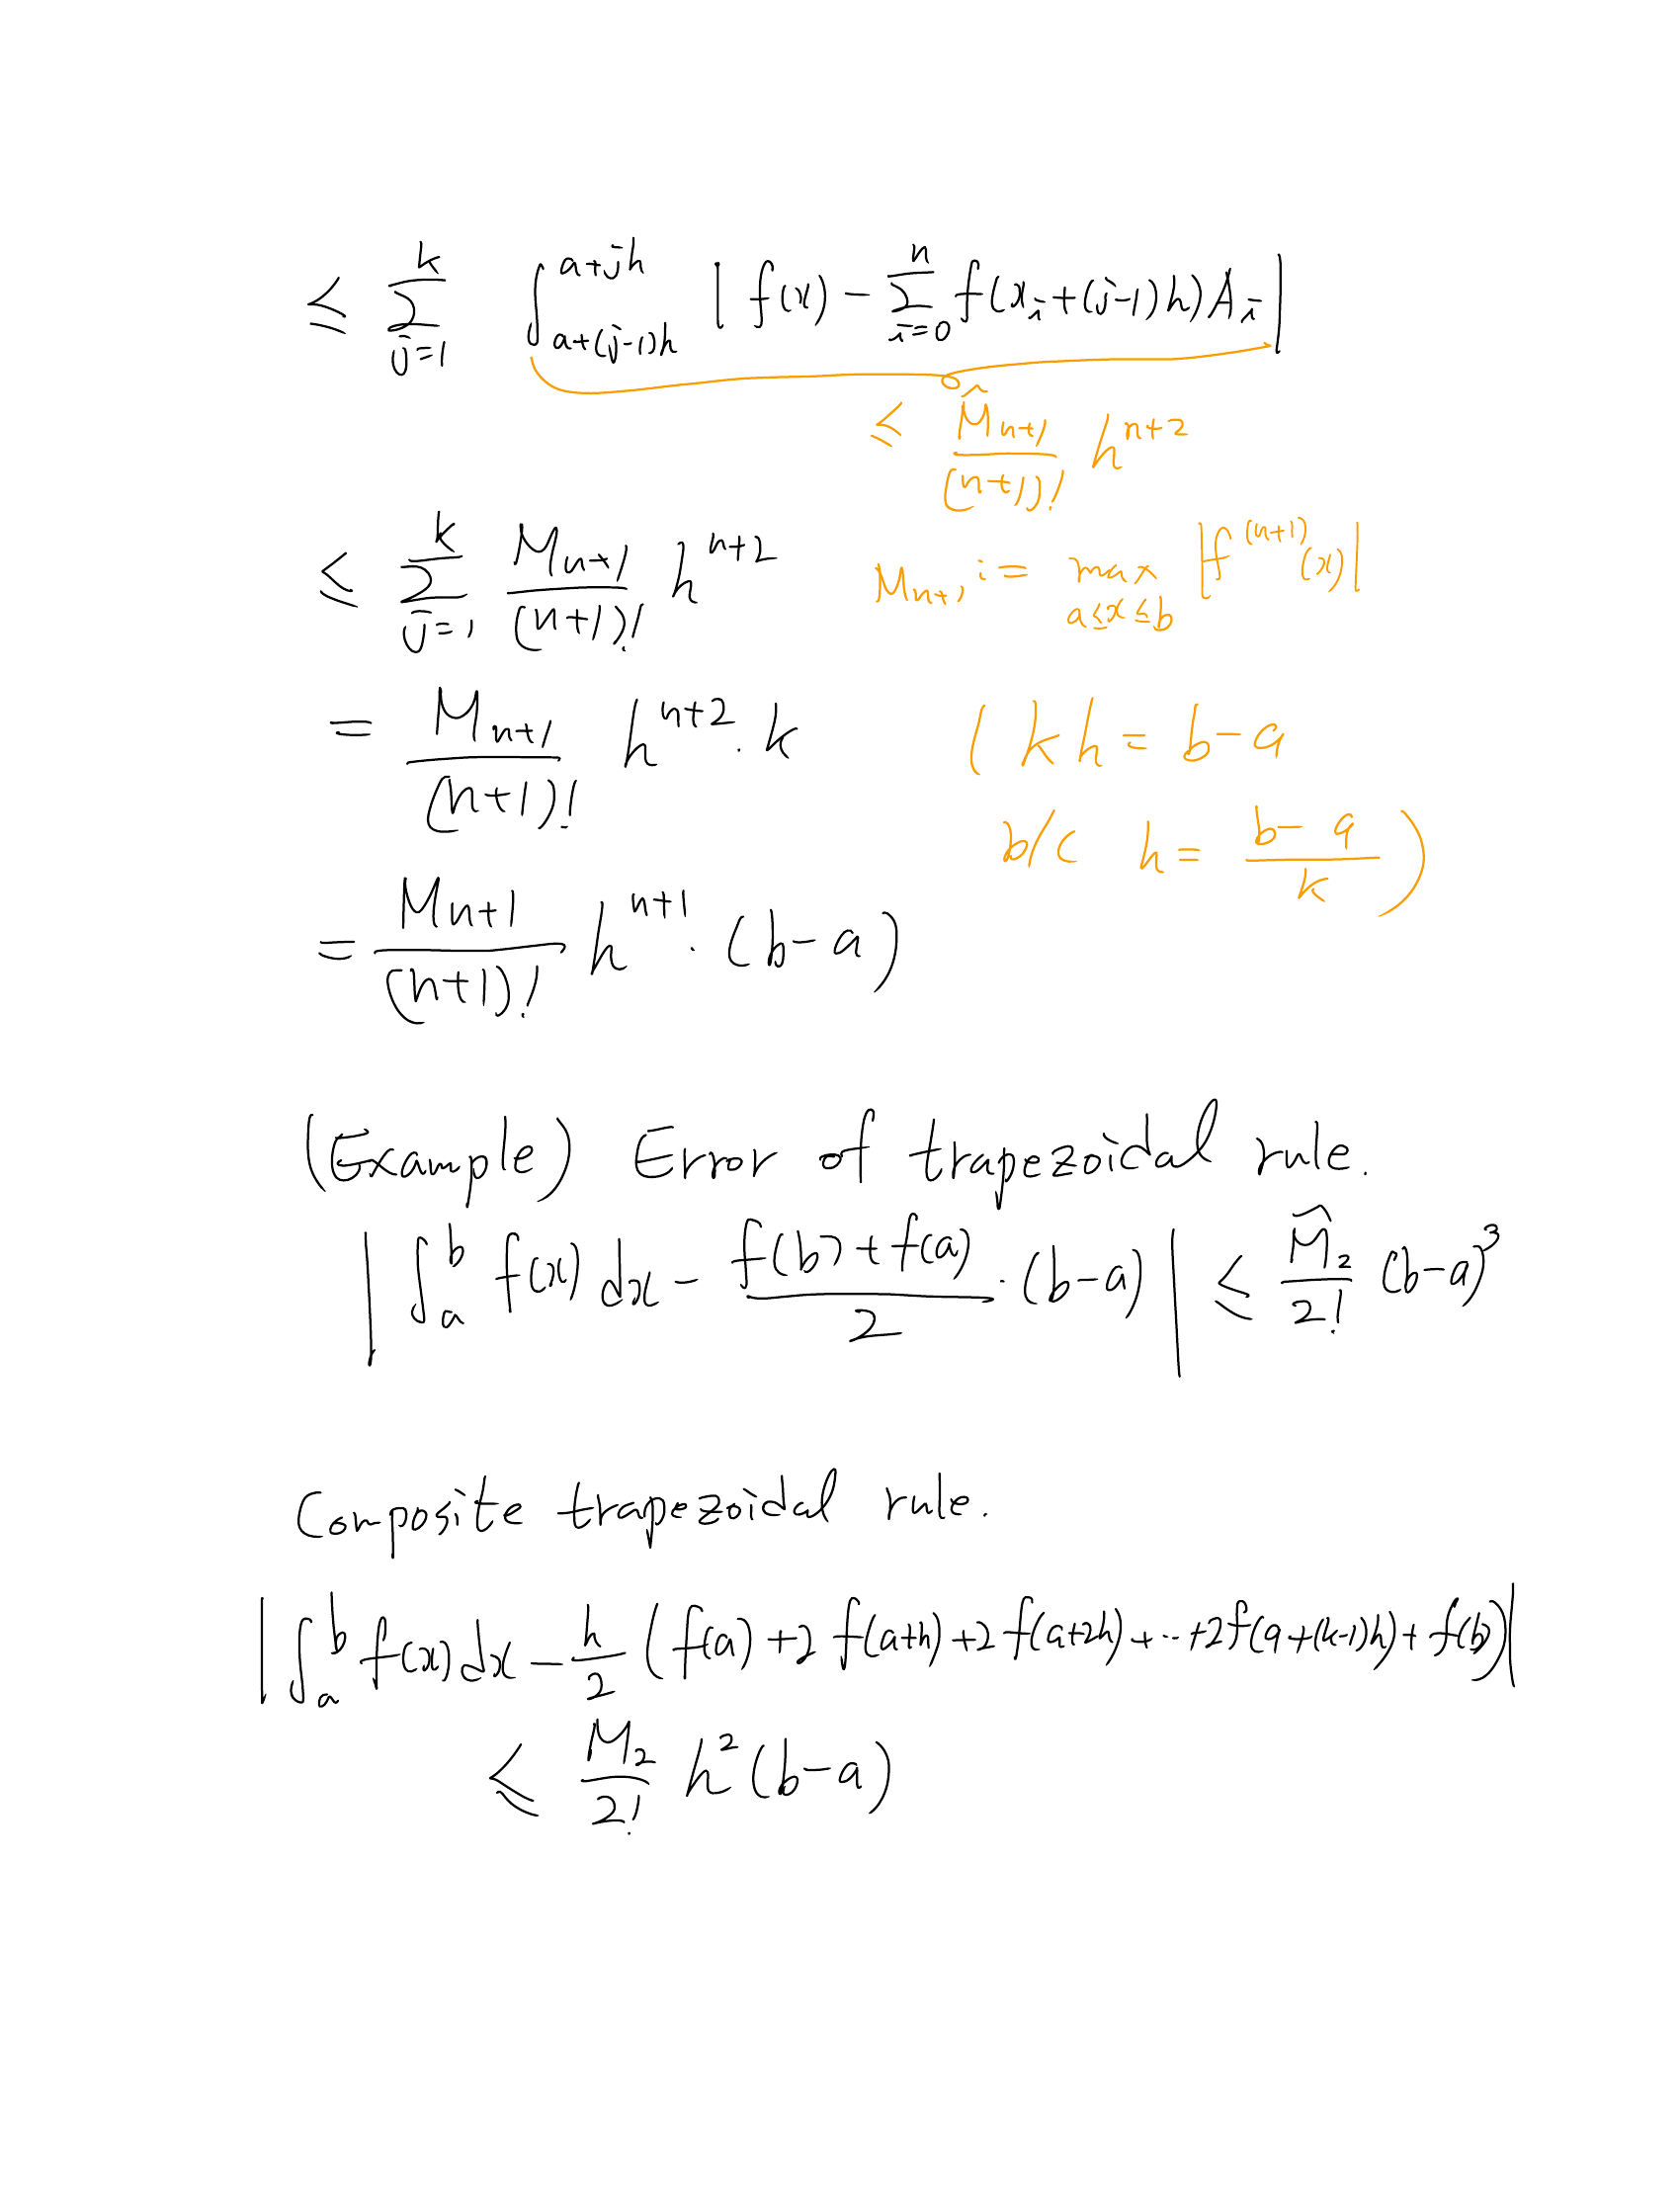 ≤ \sum_{j=1}^{k} \int_{a+(j-1)h}^{a+jh} | f(x) - \sum_{i=0}^{n} f(x_i+(j-1)h) A_i |
≤ \frac{\hat{M}_{n+1}}{(n+1)!} h^{n+2}
≤ \sum_{j=1}^{k} \frac{M_{n+1}}{(n+1)!} h^{n+2} M_{n+1} := \max_{a≤x≤b} |f^{(n+1)}(x)|
= \frac{M_{n+1}}{(n+1)!} h^{n+2} · k ( kh = b-a
b/c h = \frac{b-a}{k} )
= \frac{M_{n+1}}{(n+1)!} h^{n+1} · (b-a)
(Example) Error of trapezoidal rule.
| \int_a^b f(x) dx - \frac{f(b)+f(a)}{2} · (b-a) | ≤ \frac{\hat{M}_2}{2!} (b-a)^3
Composite trapezoidal rule.
| \int_a^b f(x) dx - \frac{h}{2} ( f(a) + 2 f(a+h) + 2 f(a+2h) + ··· + 2f(a+(k-1)h) + f(b) ) |
≤ \frac{M_2}{2!} h^2 (b-a)